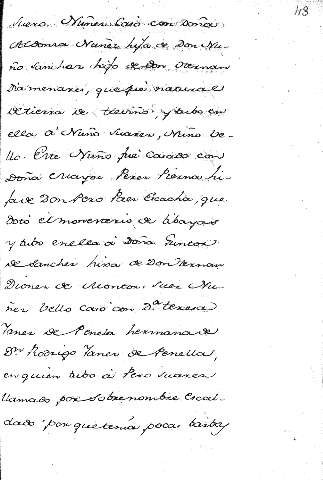 43
suero Nuñez Casó con Doña
Aldonza Nuñez hija de Don Nu-
ño Sanchez hijo de Don Hernan
Diamenares, que fué natural
de tierra de treviño, y tubo en
ella á Nuño Suarez, Nuño Ve-
llo. Este Nuño fué Casado con
Doña Mayor Perez Pierna hi-
ja de Don Pero Paez Escacha, que
dotó el monesterio de tibayas
y tubo en ella á Doña Guncon
de Sanchez hixa de Don Hernan
Dionez de Moncon. Suer Nu-
ñez Vello Casó con D.ª teresa
Yanez de Penela hermana de
Dn. Rodrigo Yanez de Penella,
en quien tubo á Pero Suarez
llamado por sobrenombre Escal-
dado porque tenia pocas barbas